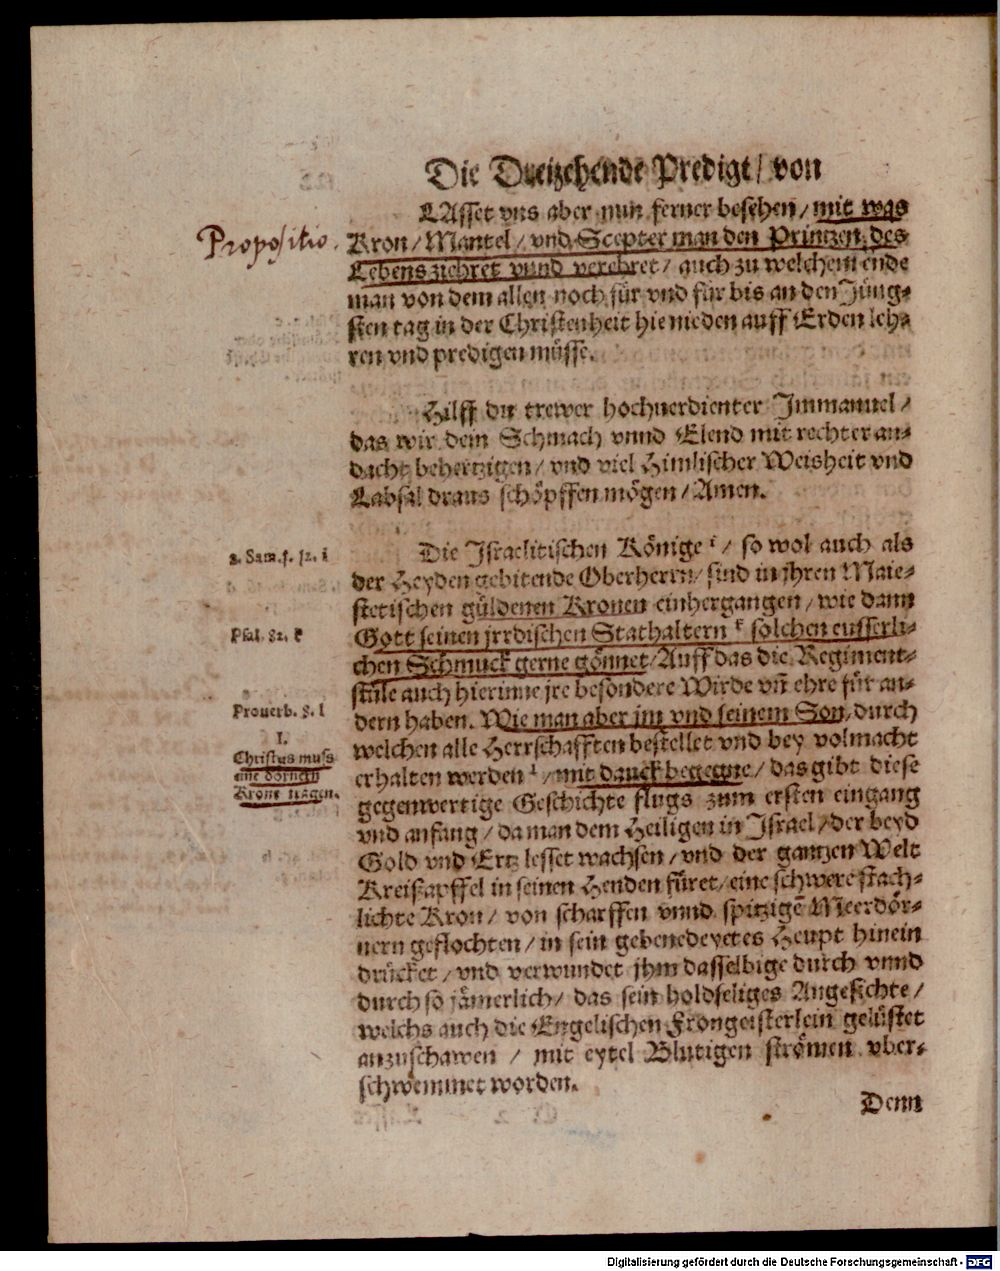 Die Dreizehende Predigt / von
LAsset vns aber nun ferner besehen / mit was
Propositio.
Kron / Mantel / vnd Scepter man den Printzen des
Lebens ziehret vnnd verehret / auch zu welchem ende
man von dem allen noch für vnd für bis an den Jüng-
sten tag in der Christenheit hienieden auff Erden leh-
ren vnd predigen müsse.
Hilff du trewer hochuerdienter Immanuel /
das wir dein Schmach vnnd Elend mit rechter an-
dacht behertzigen / vnd viel Himlischer Weisheit vnd
Labsal draus schöpffen mögen / Amen.
Die Israelitischen Könige i / so wol auch als
der Heyden gebitende Oberherrn / sind in jhren Maie-
stetischen güldenen Kronen einhergangen / wie dann
Gott seinen jrrdischen Stathaltern k solchen eusserli-
chen Schmuck gerne gönnet / Auff das die Regiment-
stüle auch hierinne jre besondere Wirde vñ ehre für an-
dern haben. Wie man aber jm vnd seinem Son, durch
welchen alle Herrschafften bestellet vnd bey volmacht
erhalten werden l / mit danck begegne / das gibt diese
gegenwertige Geschichte flugs zum ersten eingang
vnd anfang / da man dem Heiligen in Israel / der beyd
Gold vnd Ertz lesset wachsen / vnd der gantzen Welt
Kreißapffel in seinen Henden füret / eine schwere stach-
lichte Kron / von scharffen vnnd spitzigē Meerdör-
nern geflochten / in sein gebenedeyetes Heupt hinein
drücket / vnd verwundet jhm dasselbige durch vnnd
durch so jämerlich / das sein holdseliges Angesichte /
welchs auch die Engelischen Frongeisterlein gelüstet
anzuschawen / mit eytel Blutigen strömen vber-
schwemmet worden.
Denn
Psal. 82. k
Prouerb. 8. l
I.
Christus muss
eine dörnern
Krone tragen.
Digitalisierung gefördert durch die Deutsche Forschungsgemeinschaft - DFG